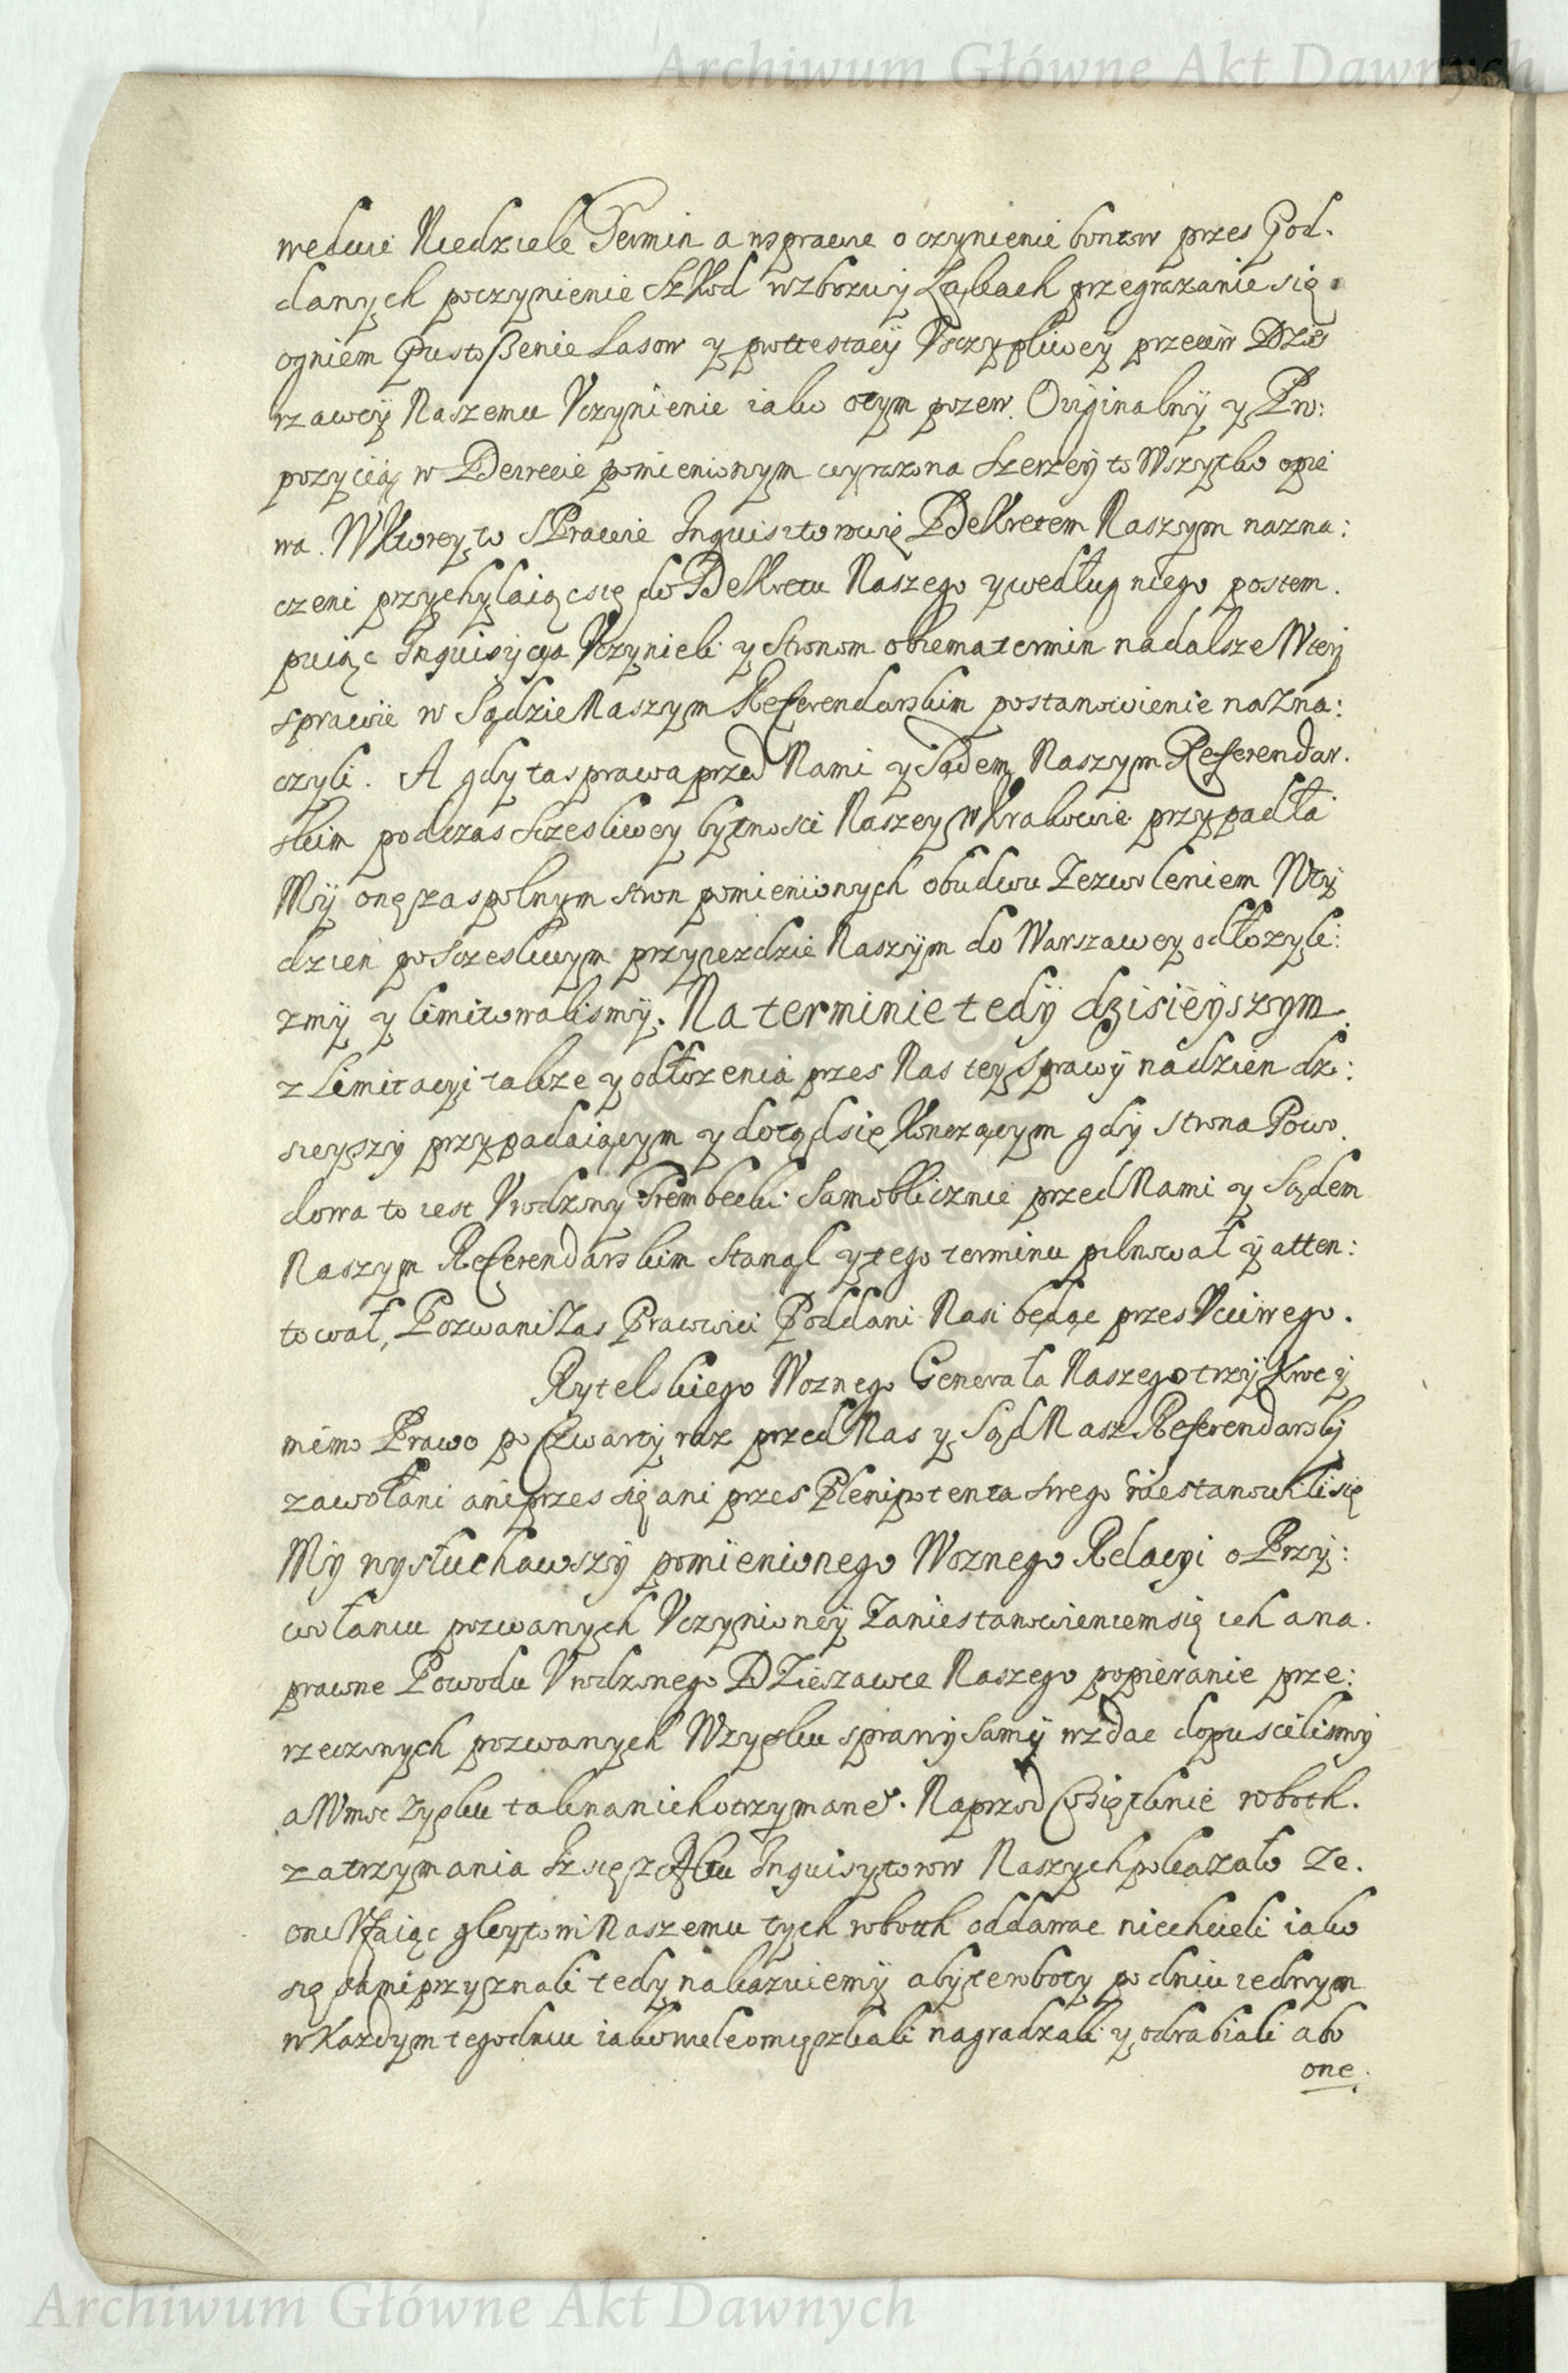 Archiwum Główne Akt Dawnych
wedwie Niedziele Termin a wsprawie o czynienie bontow przes Pod.
danych poczynienie Szkod wzbozuiy Łąkach przegrazanie się
ogniem Pustoßenie Lasow y prottestacÿ Vsczypliwey przeciw Dzie
rzawcÿ Naszemu Vczynienie iako otym pozew Originalnÿ y Pro:
pozycią w Dekrecie pomienionym wyrazona Szerzeÿ to Wszytko opie
wa. Wktorey to SPrawie Inquisitorowie Dekretem Naszym nazna:
czeni przychylaiąc się do Dekretu Naszego y według niego postem.
puiąc Inquisÿcya Vczynieli y Stronom obiema termin na dalsze Wteÿ
sprawie w Sądzie Naszym Referendarskim postanowienie nazna:
czyli. A gdy ta sprawa przed Nami y Sądem Naszym Referendar.
skim podczas Sczesliwey bytnosci Naszey w Krakowie przypadła
Mÿ onę za spolnym stron pomienionych obudwu Zezwoleniem Wty
dzien po Sczesliwym przyiezdzie Naszÿm do Warszawey odłozyli:
zmÿ y limitowalismÿ. Na terminie tedÿ dzisieyszym
z Limitacyi takze y odłozenia przes Nas tey Sprawÿ na dzien dzi:
sieyszÿ przypadaiącym y dotąd się Konczącym gdÿ Strona Powo.
dowa to iest Vrodzony Trembecki Samoblicznie przed Nami y Sądem
Naszym Referendarskim Stanął y tego terminu pilnował ÿ atten:
tował, Pozwani Zas Pracowici Poddani Nasi będąc przes Vcciwego.
Rytelskiego Woznego Generała Naszego trzÿ Kroć ÿ
mimo Prawo po Czwartÿ raz przed Nas y Sąd Nasz Referendarskÿ
zawołani ani przes się ani przes Plenipotenta swego niestanowili się
Mÿ wysłuchawszÿ pomienionego Woznego Relacyi o Przÿ:
wołaniu pozwanych Vczynioneÿ Za niestanowieniem się ich a na.
prawne Powodu Vrodzonego DZierzawce Naszego popieranie prze:
rzeczonych pozwanych Wzysku sprawÿ Samÿ wzdac dopuscilismÿ
a Wmoc Zysku tak na nich otrzymaneÿ. Naprzod Cosię tknie roboth.
zatrzymania Iz się z Aktu Inquisytorow Naszych pokazało ze.
oni Vfaiąc gleytowi Naszemu tych roboth oddawac niechcieli iako
się sami przyznali tedy nakazuiemÿ aby te roboty po dniu iednym
w Kazdym tegodniu iako wiele omięszkali nagradzali y odrabiali abo
one.
Archiwum Główne Akt Dawnych